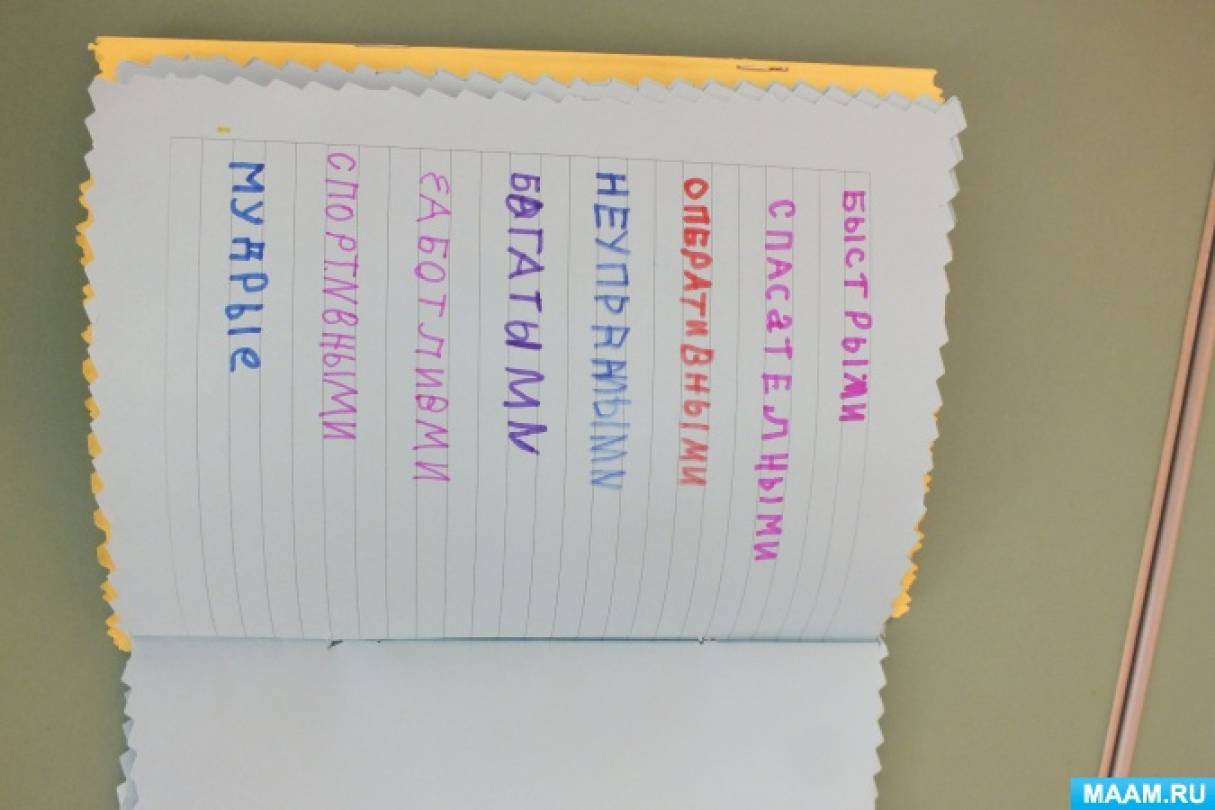 БЫСТРЫМИ
СПАСаТЕЛНЫМИ
ОПЕРАТИВНЫМИ
НЕУПРЯМЫМИ
БАГАТЫМИ
ЗАБОТЛИВМИ
СПОРТИВНЫМИ
МУДРЫе
MAAM.RU